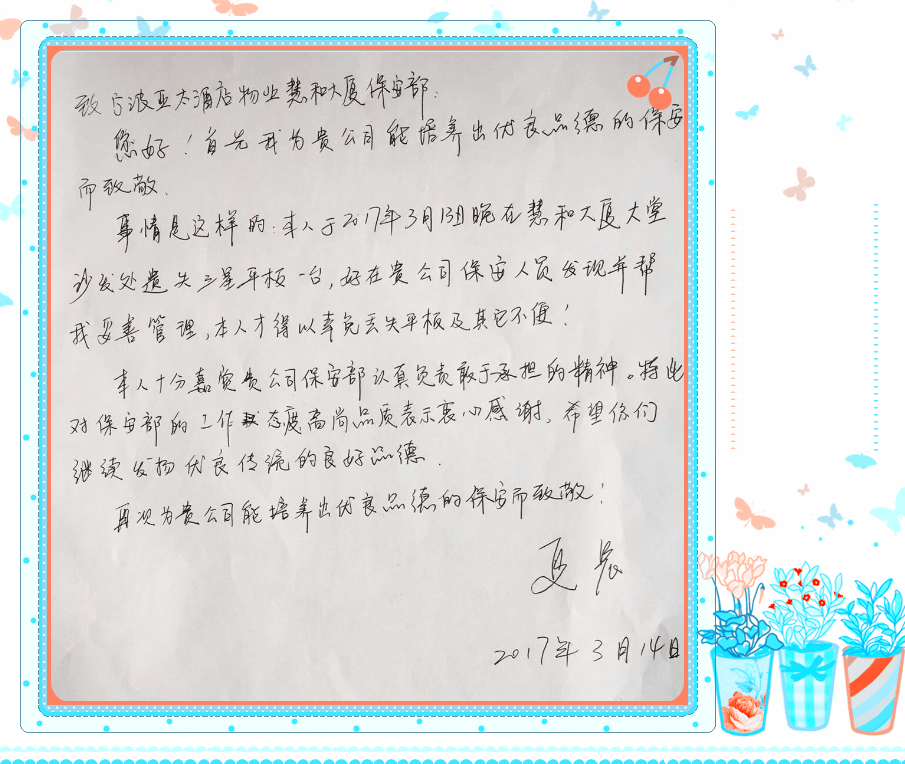 致宁波亚太酒店物业慧和大厦保安部:
您好!首先我为贵公司能培养出优良品德的保安
而致敬.
事情是这样的:本人于2017年3月13日晚在慧和大厦大堂
沙发处遗失三星平板一台,好在贵公司保安人员发现并帮
我妥善管理,本人才得以幸免丢失平板及其它不便!
本人十分嘉赏贵公司保安部认真负责敢于承担的精神。特此
对保安部的工作态度高尚品质表示衷心感谢,希望你们
继续发扬优良传统的良好品德.
再次为贵公司能培养出优良品德的保安而致敬!
2017年3月14日